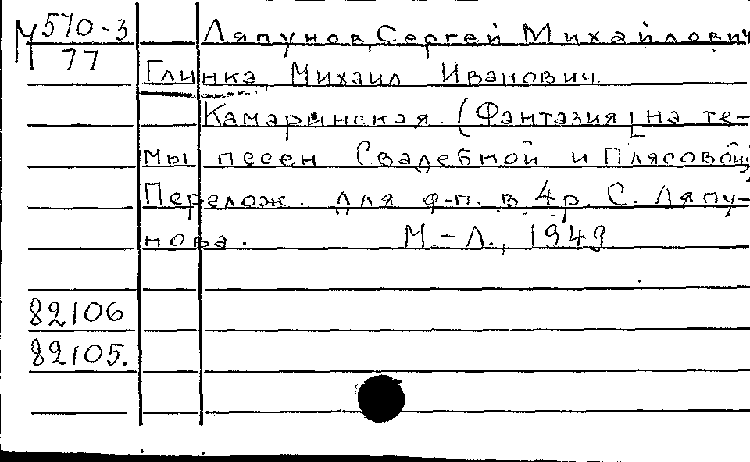 М 570-3 Ляпунов Сергей Михайлович
77
Глинка Михаил Иванович
Камаринская. (Фантазия на те-
мы песен Свадебной и Плясовой)
Перелож. для ф-п. в 4 р. С. Ляпу-
нова. М.-Л., 1949
82106
82105.